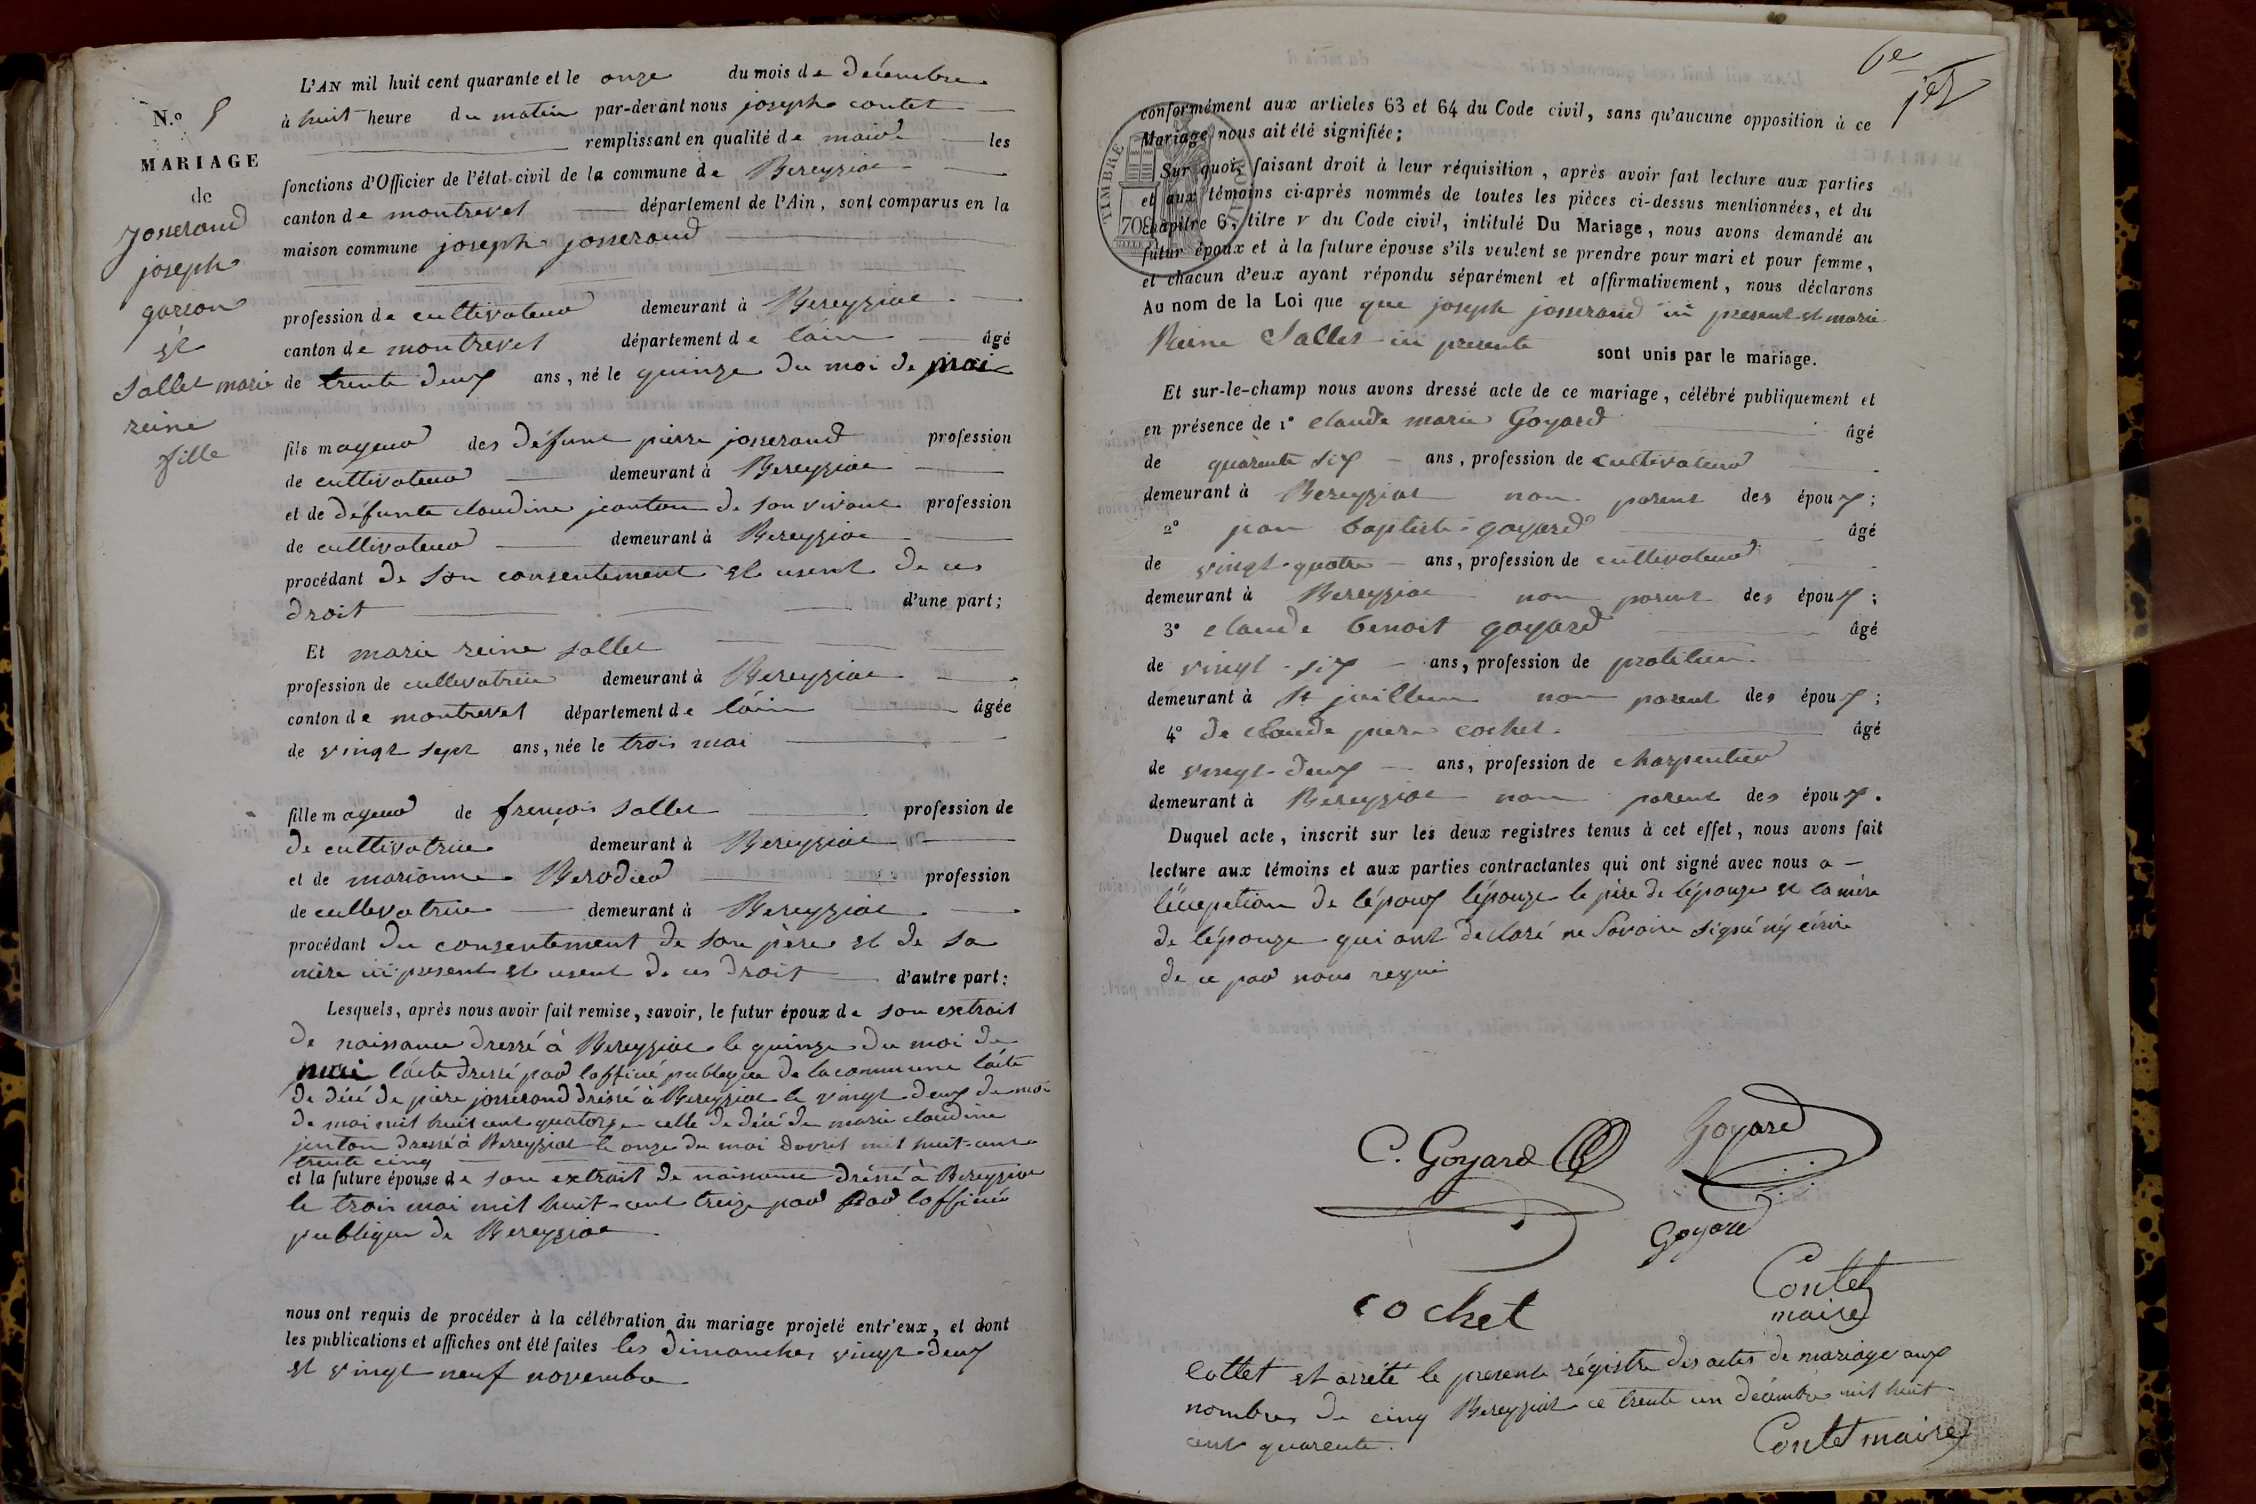 N.º 5
MARIAGE
de
Josserand
joseph
garson
et
Sallet marie
reine
fille
L'AN mil huit cent quarante et le onze du mois de décembre
à huit heure du matin par-devant nous joseph contet
remplissant en qualité de maire les
fonctions d'Officier de l'état-civil de la commune de Bereyziat
canton de montrevel département de l'Ain, sont comparus en la
maison commune joseph josserand
profession de cultivateur demeurant à Bereyziat
canton de montrevel département de l'ain âgé
de trente deux ans, né le quinze du moi de mai
fils mageur des défunt pierre josserand profession
de cultivateur demeurant à Bereyziat
et de défunte claudine jeanton de son vivant profession
de cultivateur demeurant à Bereyziat
procédant de son consentement et usent de ces
droit d'une part;
Et marie reine sallet
profession de cultivatrice demeurant à Bereyziat
canton de montrevel département de l'ain âgée
de vingt sept ans, née le trois mai
fille mageur de françois sallet profession de
de cultivatrice demeurant à Bereyziat
et de marianne Berodier profession
de cultivatrice demeurant à Bereyziat
procédant du consentement de son père et de sa
mère ici present et usent de ces droit d'autre part:
Lesquels, après nous avoir fait remise, savoir, le futur époux de son extrait
de naissance dressé à Bereyziat le quinze du moi de
mai l'acte dressé par l'officié publique de la commune l'acte
de décé de piere josserand dressé à Bereyziat le vingt deux de moi
de mai mil huit cent quatorze celle de décé de marie claudine
jenton dressé à Bereyziat le onze du moi d'avril mil huit-cent
trente cinq
et la future épouse de son extrait de naissance dréssé à Bereyziat
le trois mai mil huit-cent treize par par l'officié
publique de Bereyziat
nous ont requis de procéder à la célébration du mariage projeté entr'eux, et dont
les publications et affiches ont été faites les dimanches vingt-deux
et vingt neuf novembre
6e
conformément aux articles 63 et 64 du Code civil, sans qu'aucune opposition à ce
Mariage nous ait été signifiée;
TIMBRE ROYAL
70 c
Sur quoi, faisant droit à leur réquisition, après avoir fait lecture aux parties
et aux témoins ci-après nommés de toutes les pièces ci-dessus mentionnées, et du
chapitre 6, titre v du Code civil, intitulé Du Mariage, nous avons demandé au
futur époux et à la future épouse s'ils veulent se prendre pour mari et pour femme,
et chacun d'eux ayant répondu séparément et affirmativement, nous déclarons
Au nom de la Loi que que joseph josserand ici present et marie
Reine Sallet ici presente sont unis par le mariage.
Et sur-le-champ nous avons dressé acte de ce mariage, célébré publiquement et
en présence de 1º claude marie Goyard âgé
de quarente six ans, profession de cultivateur
demeurant à Bereyziat non parent des époux;
2º jean baptiste goyard âgé
de vingt-quatre ans, profession de cultivateur
demeurant à Bereyziat non parent des époux;
3º claude benoit goyard âgé
de vingt-six ans, profession de
demeurant à St juillien non parent des époux;
4º de claude piere cochet âgé
de vingt-deux ans, profession de charpentier
demeurant à Bereyziat non parent des époux.
Duquel acte, inscrit sur les deux registres tenus à cet effet, nous avons fait
lecture aux témoins et aux parties contractantes qui ont signé avec nous a
l'éccepetion de l'époux l'épouze le père de l'épouze et la mère
de l'épouze qui ont déclaré ne savoire signé ny écrire
de ce par nous requi
C. Goyard
Goyard
Goyard
cochet
Contet
maire
Cottet et arrété le presente régistre des actes de mariage aux
nombres de cinq Bereyziat ce trente un décembre mil huit
cent quarente.
Contet maire